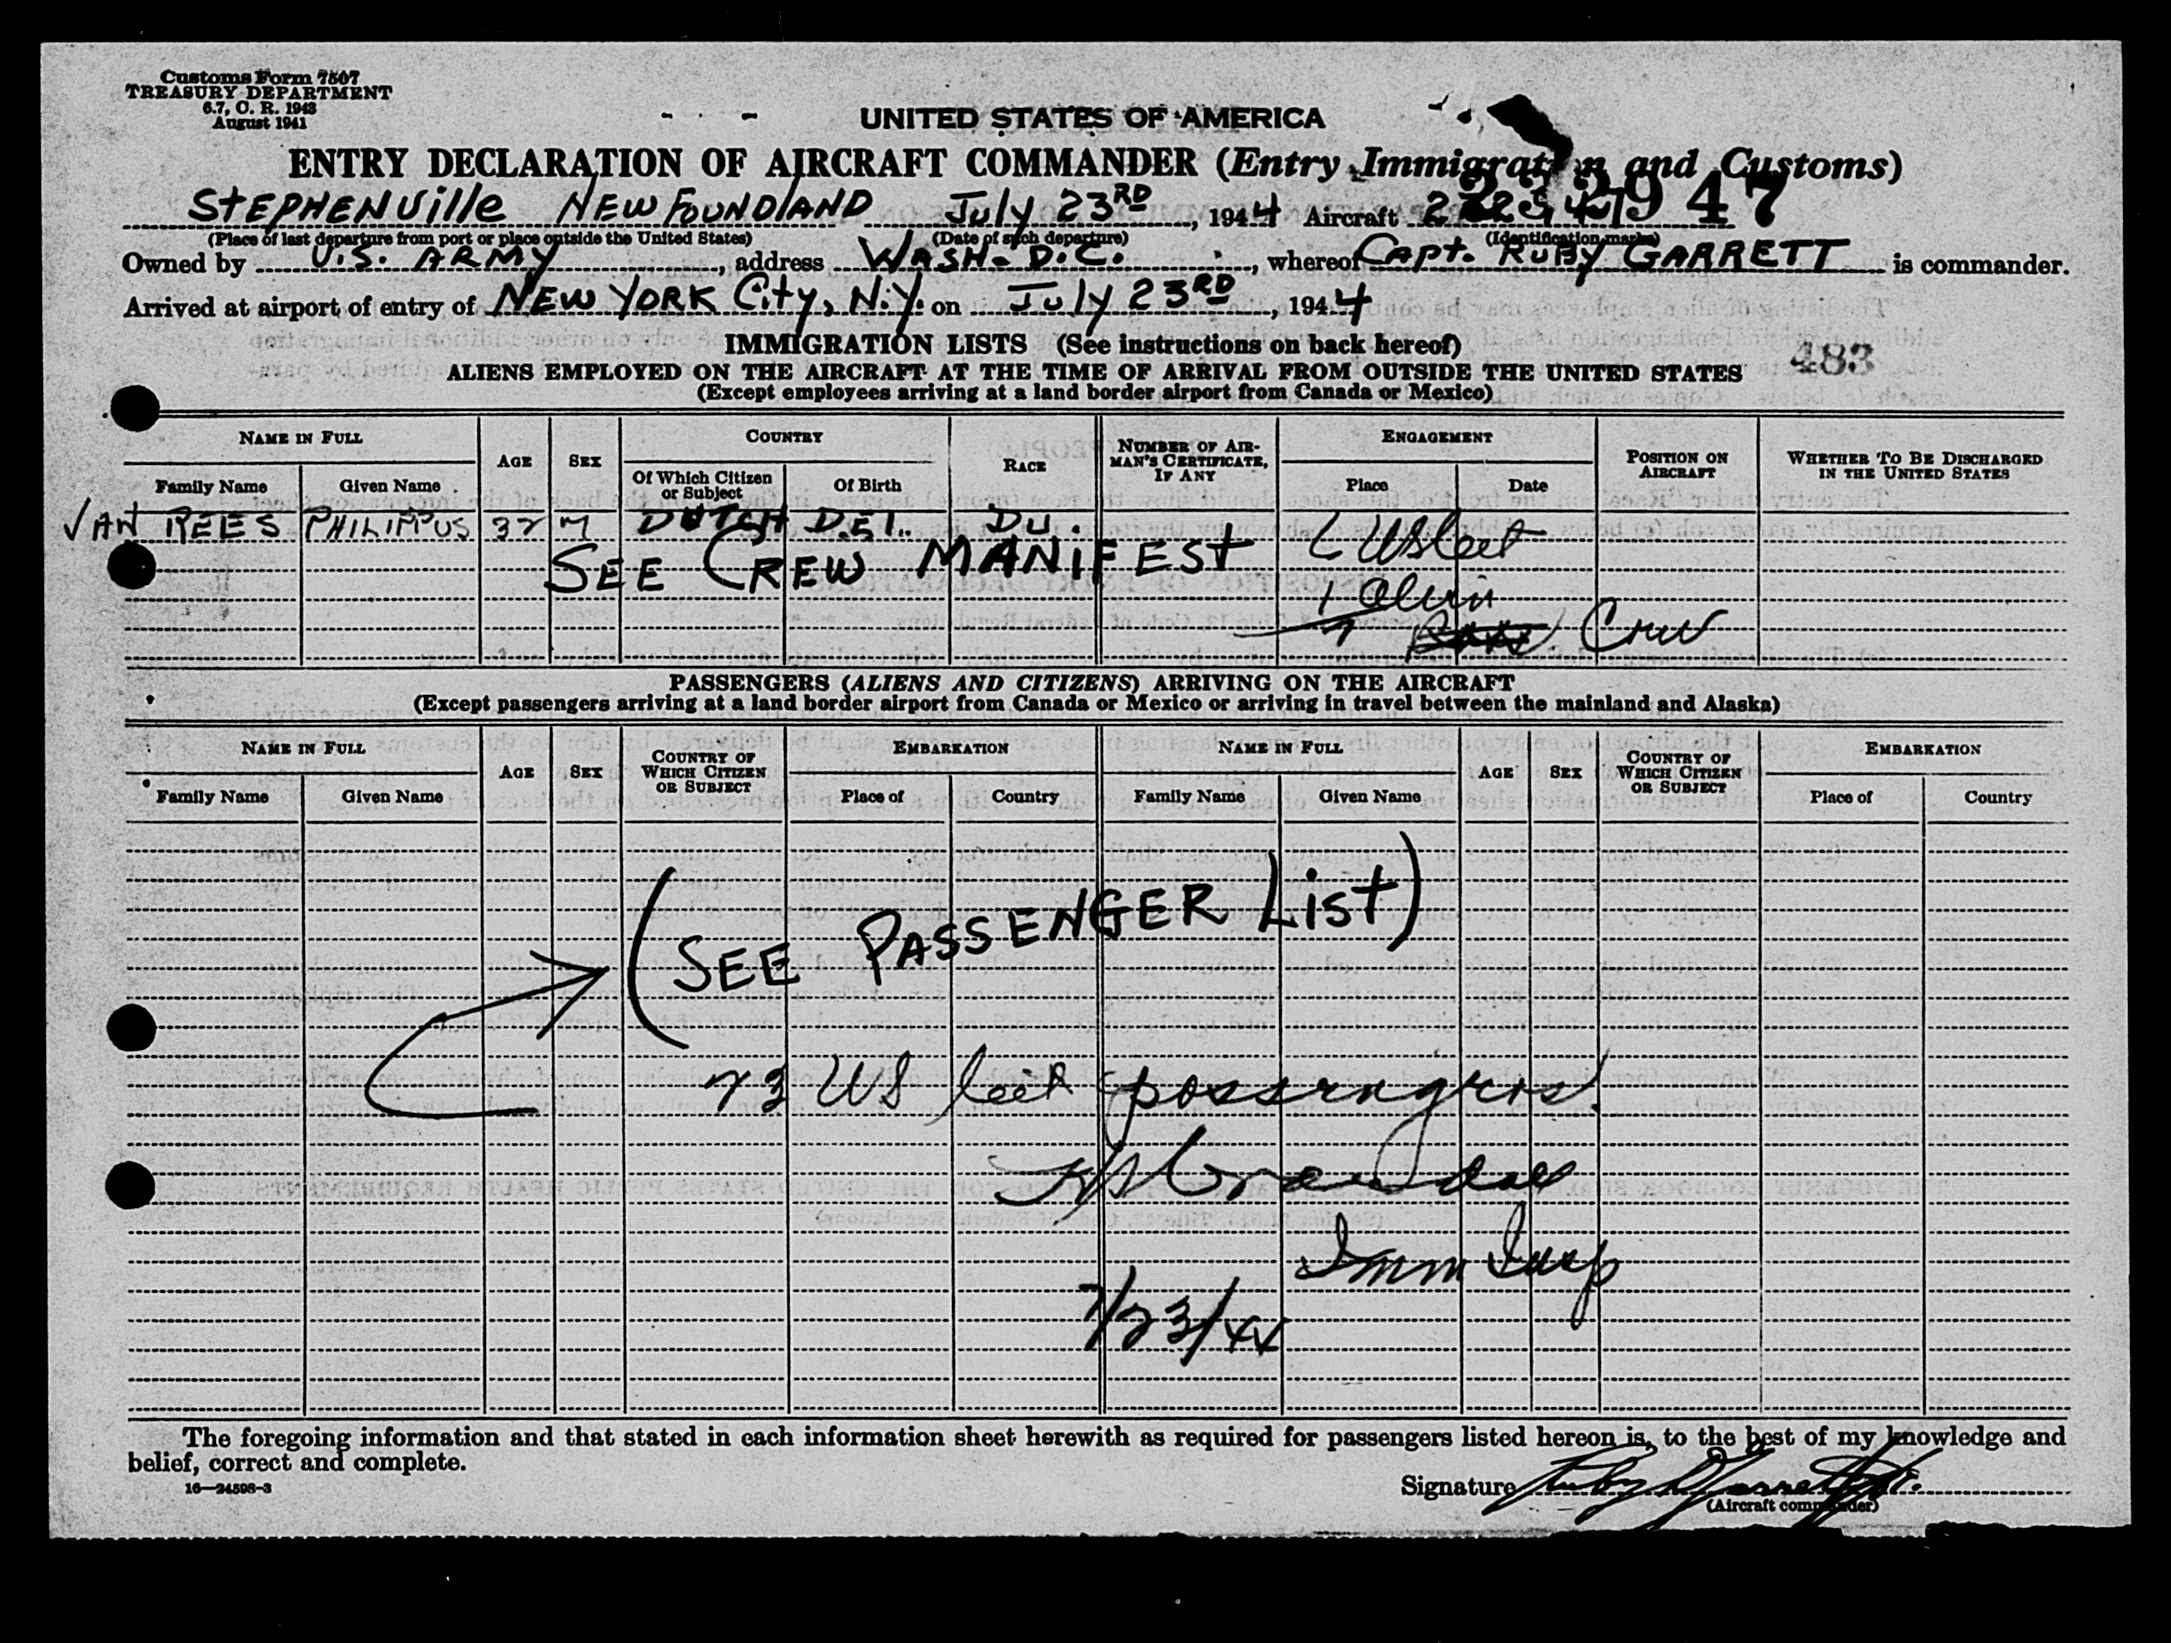 Customs Form 7507
TREASURY DEPARTMENT
6.7, C. R. 1943
August 1941
UNITED STATES OF AMERICA
ENTRY DECLARATION OF AIRCRAFT COMMANDER (Entry Immigration and Customs)
STEPHENVille NEWFOUNDlAND July 23RD, 1944 Aircraft
(Place of last departure from port or place outside the United States) (Date of such departure) (Identification marks)
Owned by U.S. ARMY, address WASH. D.C., whereof CAPT. RUBY GARRETT is commander.
Arrived at airport of entry of NEW YORK City, N.Y. on July 23RD, 1944
IMMIGRATION LISTS (See instructions on back hereof)
483
ALIENS EMPLOYED ON THE AIRCRAFT AT THE TIME OF ARRIVAL FROM OUTSIDE THE UNITED STATES
(Except employees arriving at a land border airport from Canada or Mexico)
NAME IN FULL AGE SEX COUNTRY RACE NUMBER OF AIRMAN'S CERTIFICATE, IF ANY ENGAGEMENT POSITION ON AIRCRAFT WHETHER TO BE DISCHARGED IN THE UNITED STATES
Family Name Given Name Of Which Citizen or Subject Of Birth Place Date
VAN REES PHILIPPUS 32 M DUTCH D.E.I. DU.
SEE CREW MANIFEST
Crew
PASSENGERS (ALIENS AND CITIZENS) ARRIVING ON THE AIRCRAFT
(Except passengers arriving at a land border airport from Canada or Mexico or arriving in travel between the mainland and Alaska)
NAME IN FULL AGE SEX COUNTRY OF WHICH CITIZEN OR SUBJECT EMBARKATION NAME IN FULL AGE SEX COUNTRY OF WHICH CITIZEN OR SUBJECT EMBARKATION
Family Name Given Name Place of Country Family Name Given Name Place of Country
(SEE PASSENGER LiST)
23 US Cit passengers
Imm Insp
7/23/44
The foregoing information and that stated in each information sheet herewith as required for passengers listed hereon is, to the best of my knowledge and
belief, correct and complete.
16—24598-3
Signature
(Aircraft commander)